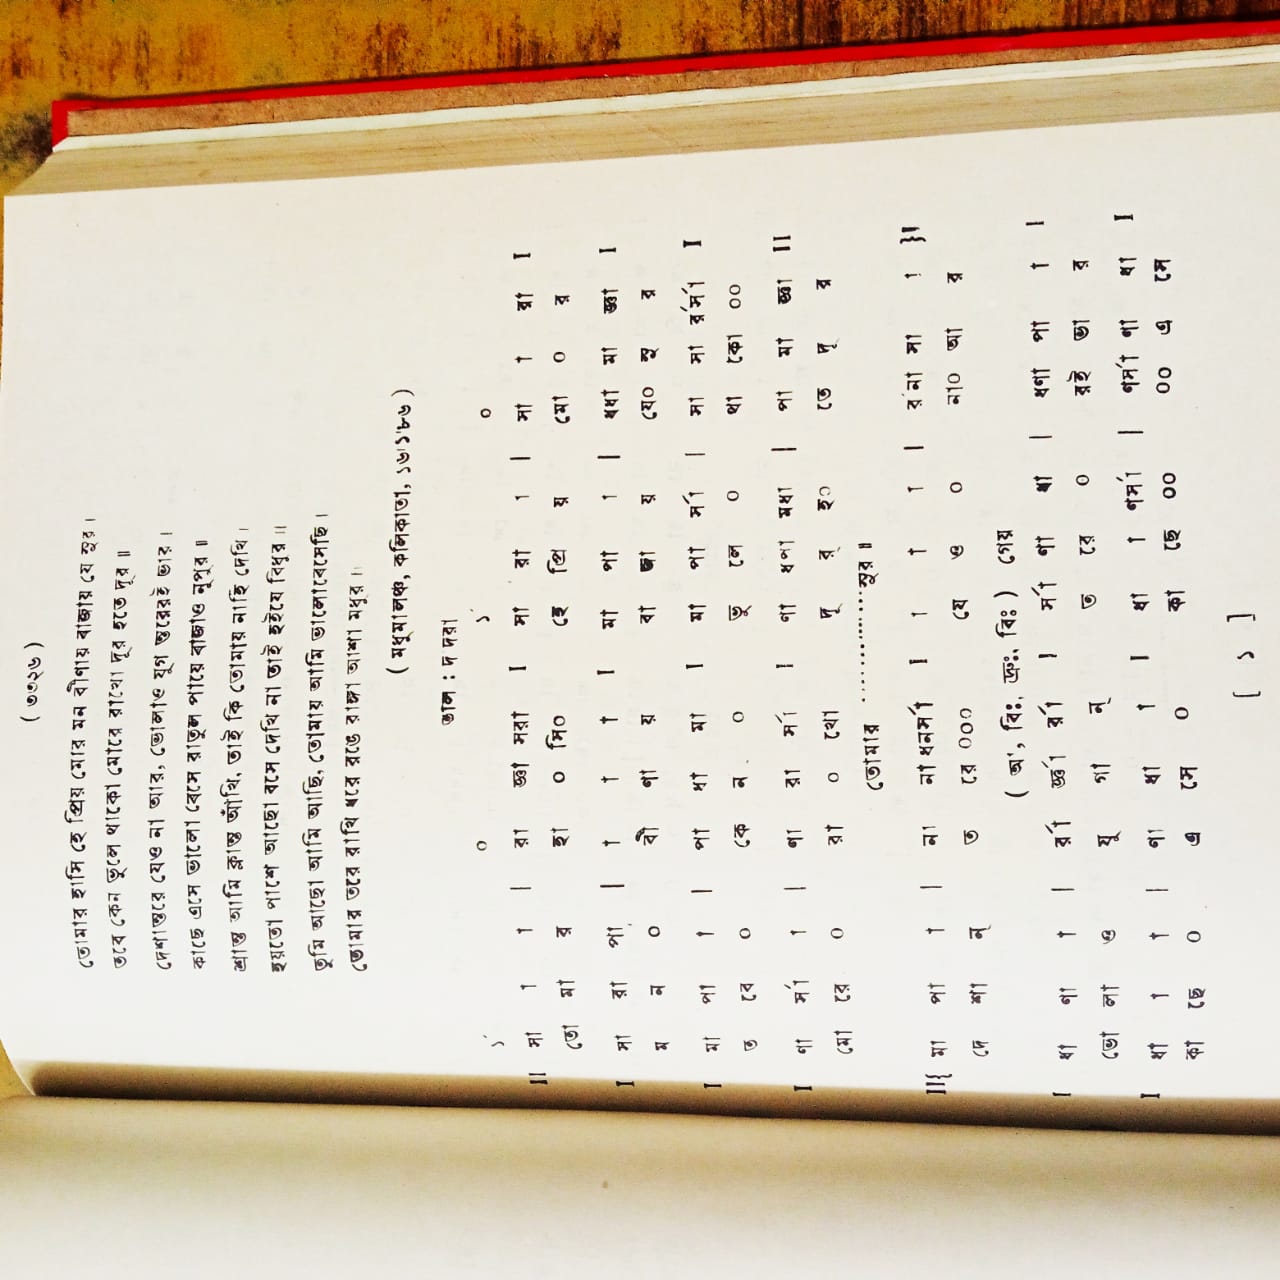 ( ৩৩২৬ )
তোমার হাসি হে প্রিয় মোর মন বীণায় বাজায় যে সুর।
তবে কেন ভুলে থাকো মোরে রাখো দূর হতে দূর॥
দেশান্তরে যেও না আর, ভোলাও যুগ ন্তরেরই ভার।
কাছে এসে ভালো বেসে রাতুল পায়ে বাজাও নূপুর॥
শ্রান্ত আমি ক্লান্ত আঁখি, তাই কি তোমায় নাহি দেখি।
হয়তো পাশে আছো বসে দেখি না তাই হইযে বিধুর॥
তুমি আছো আমি আছি, তোমায় আমি ভালোবেসেছি।
তোমার তরে রাখি ধরে রঙে রাঙ্গা আশা মধুর॥
( মধুমালঞ্চ, কলিকাতা, ১৬।১'৮৬ )
তাল : দ দরা
১´ ০ ১´ ০
II সা া া | রা জ্ঞা সরা I সা রা া | সা া রা I
তো মা র হা ০ সি০ হে প্রি য় মো ০ র
I সা রা পা | া া া I মা পা া | ধধা মা জ্ঞা I
ম ন ০ বী ণা য় বা জা য় যে০ সু র
I মা পা া | পা ধা মা I মা পা র্সা | সা সা র্রর্সা I
ত বে ০ কে ন ০ ভু লে ০ থা কো ০০
I ণা র্সা া | ণা রা র্সা I ণা ধপা মধা | পা মা জ্ঞা II
মো রে ০ রা ০ খো দূ র্ হ০ তে দূ র
তোমার ..............সুর॥
II{ মা পা া | না না ধনর্সা I া া া | র্রনা সা া }I
দে শা ন্ ত রে ০০০ যে ও ০ না০ আ র
( অ', বিঃ, দ্রুঃ, বিঃ ) গেয়
I ধা ণা া | র্রা র্জ্ঞা র্রা I র্সা ণা ধা | ধণা পা া I
ভো লা ও যু গা ন্ ত রে ০ রই ভা র
I ধা া া | ণা ধা া I ধা া ণর্সা | ণর্সা ণা ধা I
কা ছে ০ এ সে ০ কা ছে ০০ ০০ এ সে
[ ১ ]